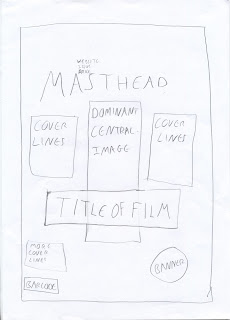 WEBSITE
MASTHEAD
COVER
LINES
DOMINANT
CENTRAL
IMAGE
COVER
LINES
TITLE OF FILM
MORE
COVER
LINES
BARCODE
BANNER